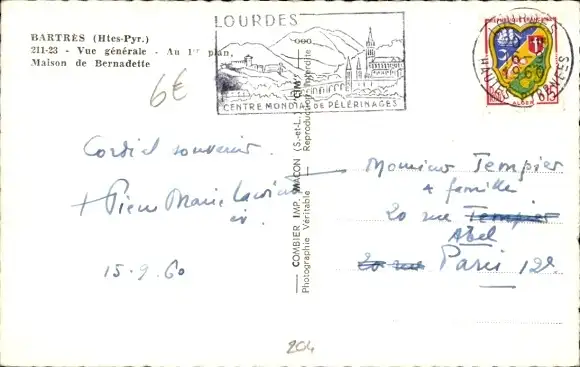 BARTRÈS (Htes-Pyr.)
211-23 - Vue générale - Au 1er plan,
Maison de Bernadette
6€
LOURDES
CENTRE MONDIAL DE PÈLERINAGES
REPUBLIQUE FRANÇAISE
16
1960
HAUTES PYRENEES
ALGER
0,15
Cordial souvenir.
+ Pierre Marie
15.9.60
COMBIER IMP. MACON (S.-et-L.) "CIM"
Photographie Véritable - Reproduction interdite
Monsieur Tempier
& famille
20 rue Tempier
Abel
20 rue Paris 12e
204